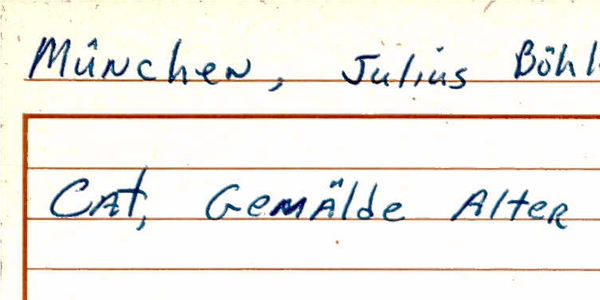 München, Julius Böhl
Cat, Gemälde Alter